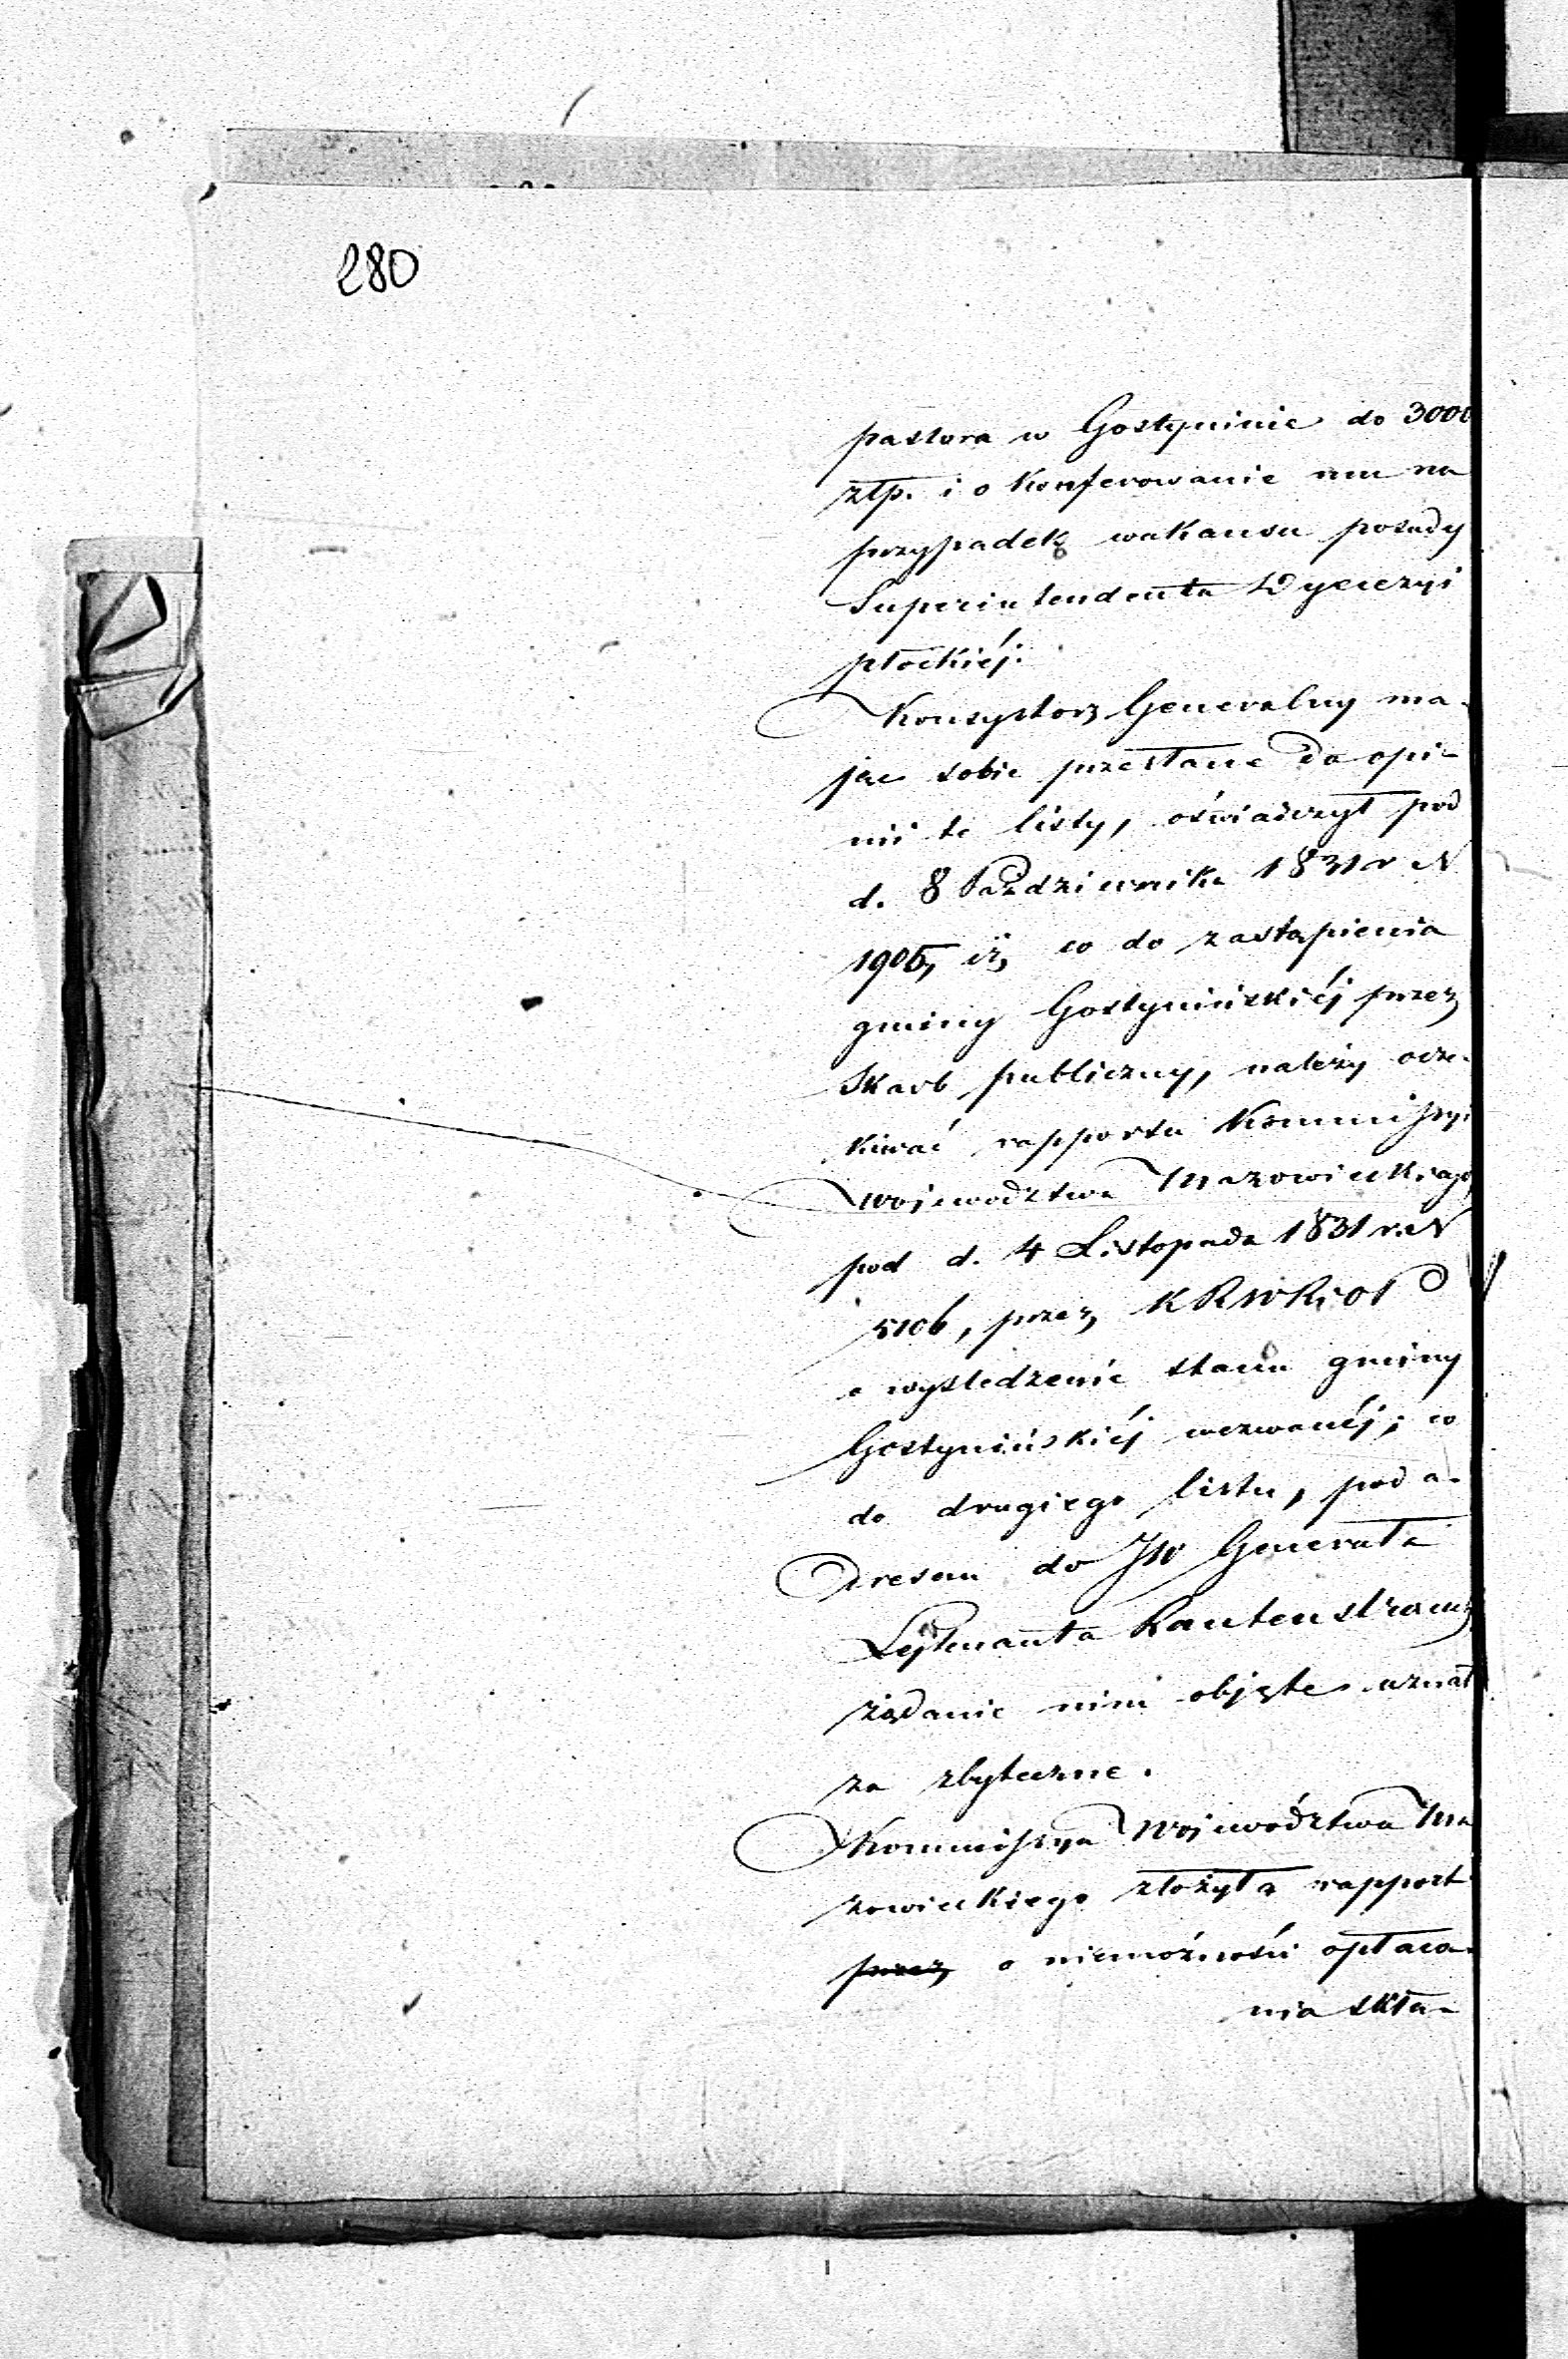 280
pastora w Gostyninie do 3000
złp. i o konferowanie mu na
przypadek wakansu posady
Superintendenta Dyecezyi
płockiéj.
Konsystorz Generalny ma-
jąc sobie przesłane do opi-
nii te listy, oświadczył pod
d. 8 Października 1831 r N
1906, iż, co do zastąpienia
gminy Gostynińskiéj przez
Skarb publiczny, należy ocze-
kiwać rapportu Kommissyi
Województwa Mazowieckiego,
pod d. 4 Listopada 1831 r. N
5106, przez KRWRiOP
o wyśledzenie stanu gminy
Gostynińskiéj wezwanéj; co
do drugiego listu, pod a-
dresem do JW Generała
Lejtnanta Rautenstrauch
żądanie nim objęte uznał
za zbyteczne.
Kommissya Województwa Ma
zowieckiego złożyła rapport
przez o niemożności opłaca-
nia skła-